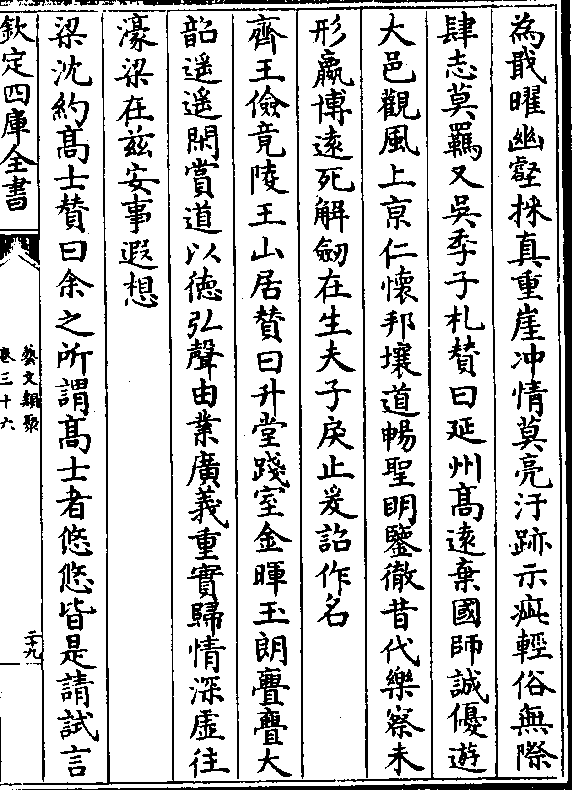 為戢曜幽壑採真重崖冲情莫亮汙跡示疵輕俗無際
肆志莫羈又吳季子札賛曰延州髙逺棄國師誠優遊
大邑觀風上京仁懷邦壤道暢聖明鑒徹昔代樂察未
形嬴博逺死解劒在生夫子戾止爰詔作名
齊王儉竟陵王山居賛曰升堂踐室金暉玉朗亹亹大
韶遥遥閑賞道以徳弘聲由業廣義重實歸情深虚往
濠梁在兹安事遐想
梁沈約髙士賛曰余之所謂髙士者悠悠皆是請試言
欽定四庫全書
藝文類聚
卷三十六
二十九